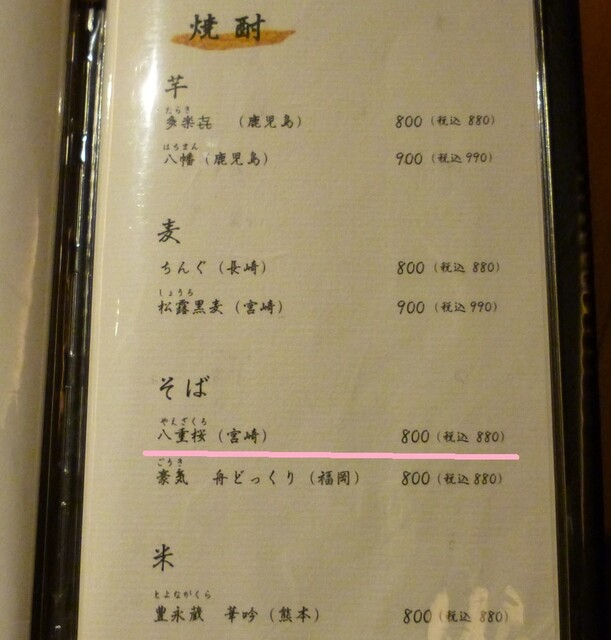 焼酎
芋
たらき
多楽㐂 （鹿児島） 800（税込 880）
はちまん
八幡（鹿児島） 900（税込 990）
麦
ちんぐ（長崎） 800（税込 880）
しょうろ
松露黒麦（宮崎） 900（税込 990）
そば
やえざくら
八重桜（宮崎） 800（税込 880）
ごうき
豪気 舟どっくり（福岡） 800（税込 880）
米
とよながくら
豊永蔵 華吟（熊本） 800（税込 880）